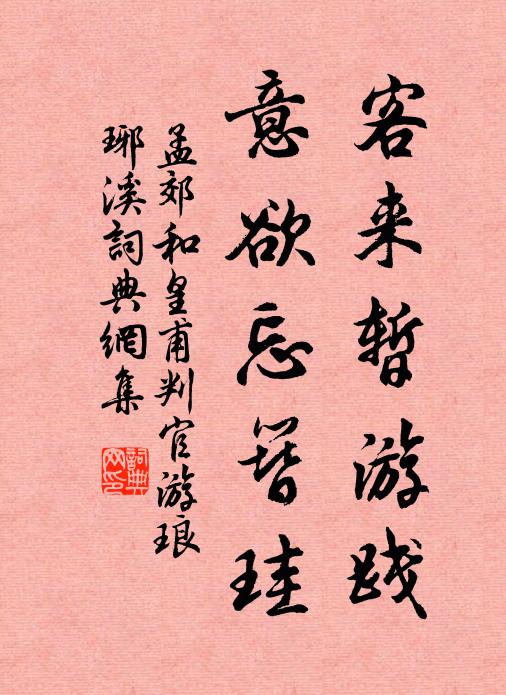 客来暂游践
意欲忘簪珪
孟郊和皇甫判官游琅
琊溪詞典網集
詞典
网印